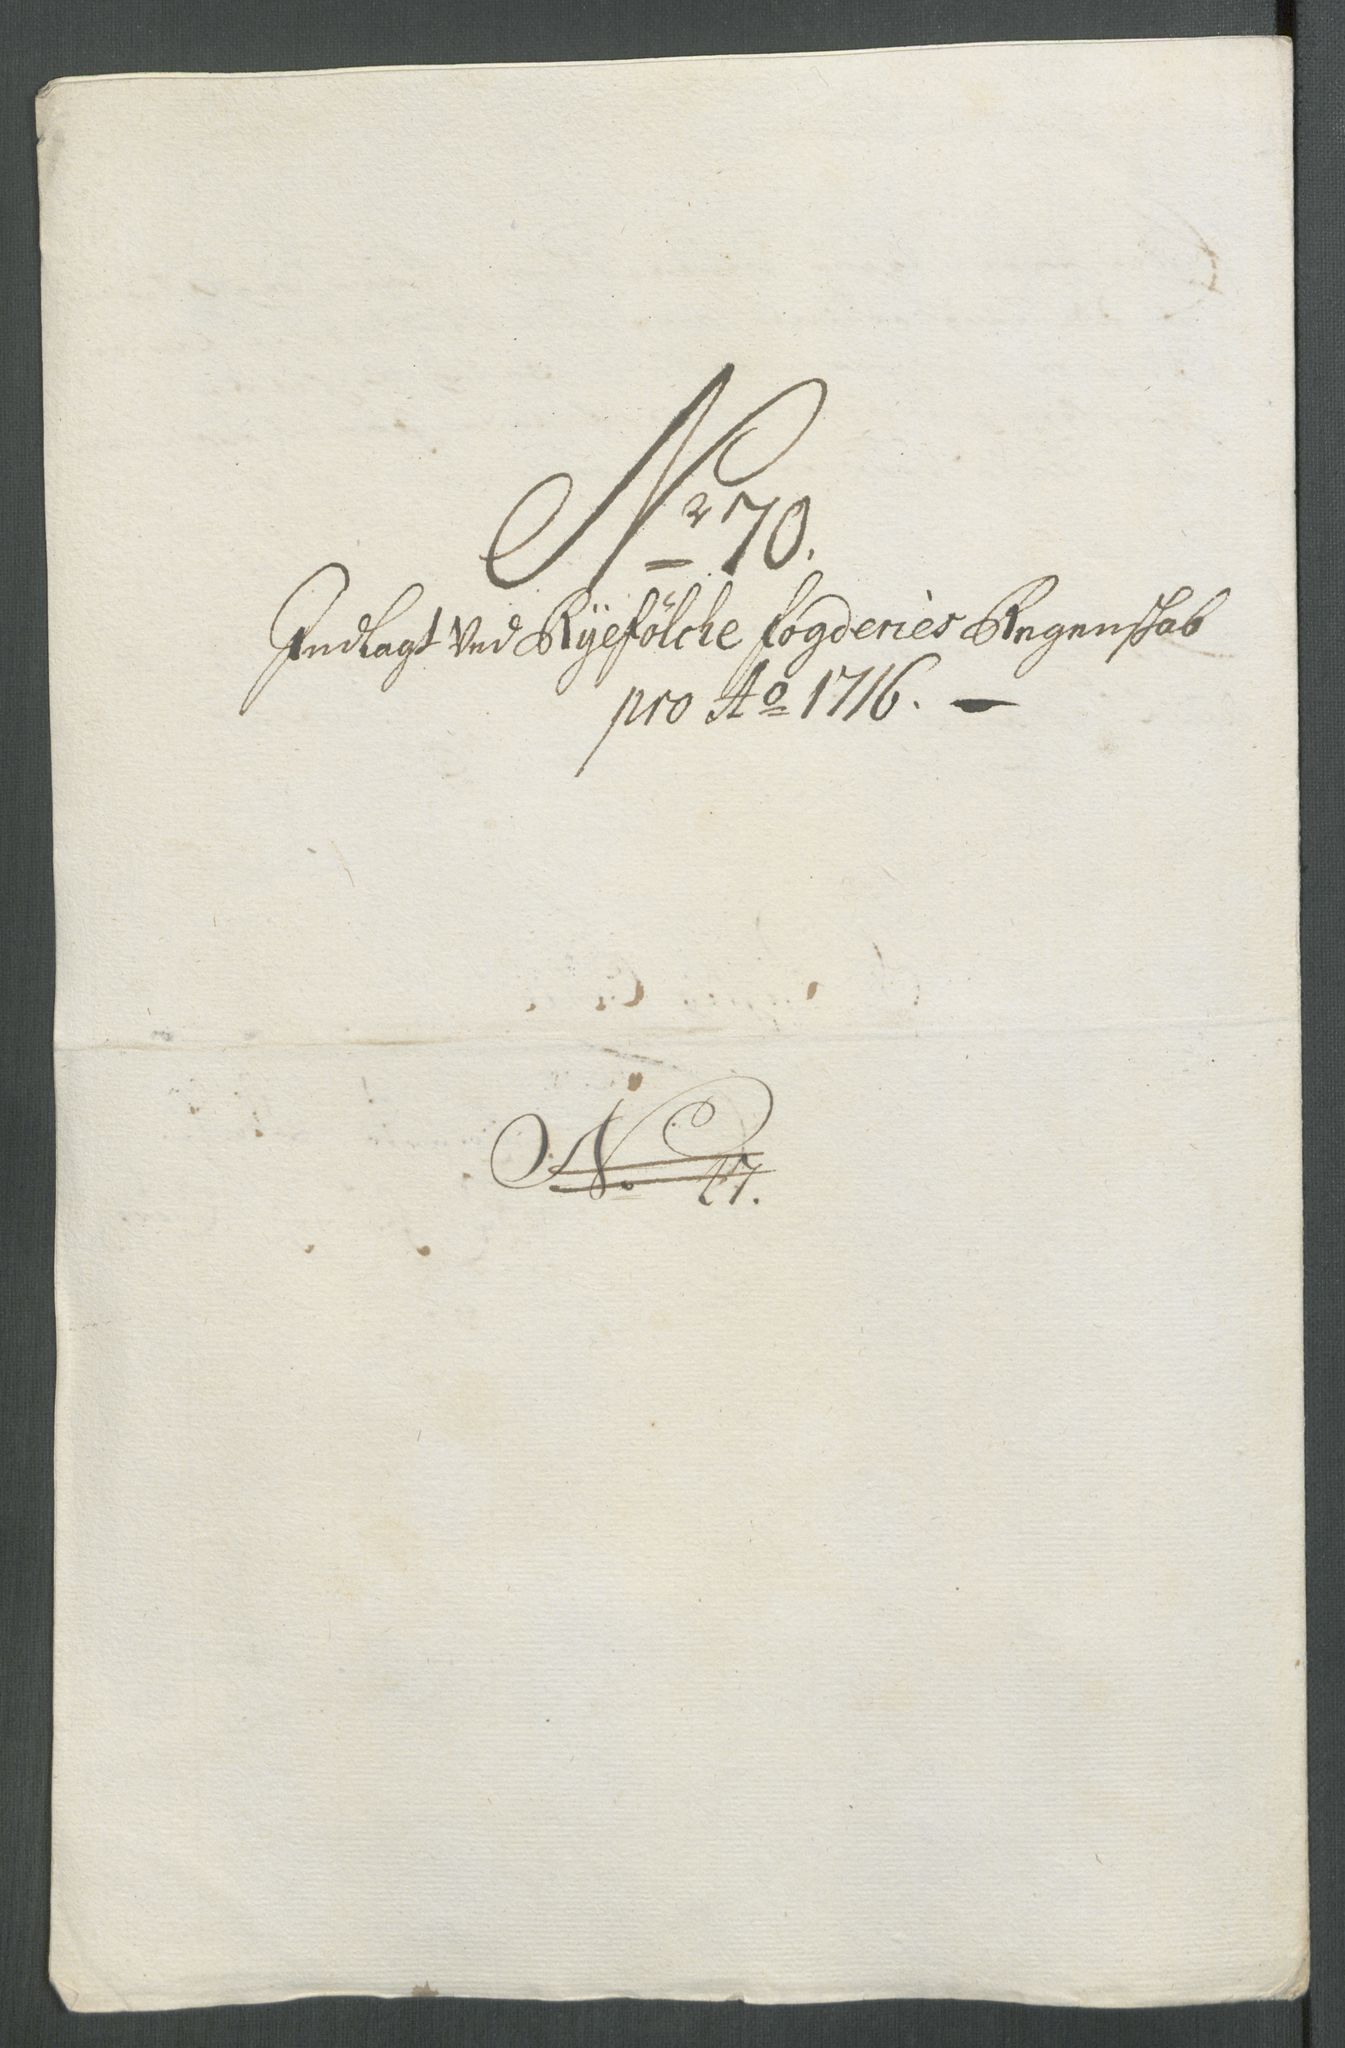 Nr 70.
Indlagt Ved Rÿefölche fogderies Regenskab
pro Ao 1716. —
No. 17.